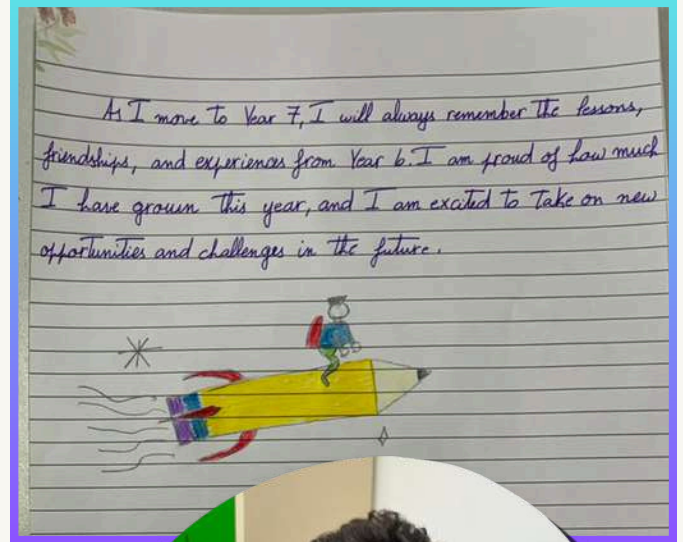 As I move to Year 7, I will always remember the lessons,
friendships, and experiences from Year 6. I am proud of how much
I have grown this year, and I am excited to take on new
opportunities and challenges in the future.